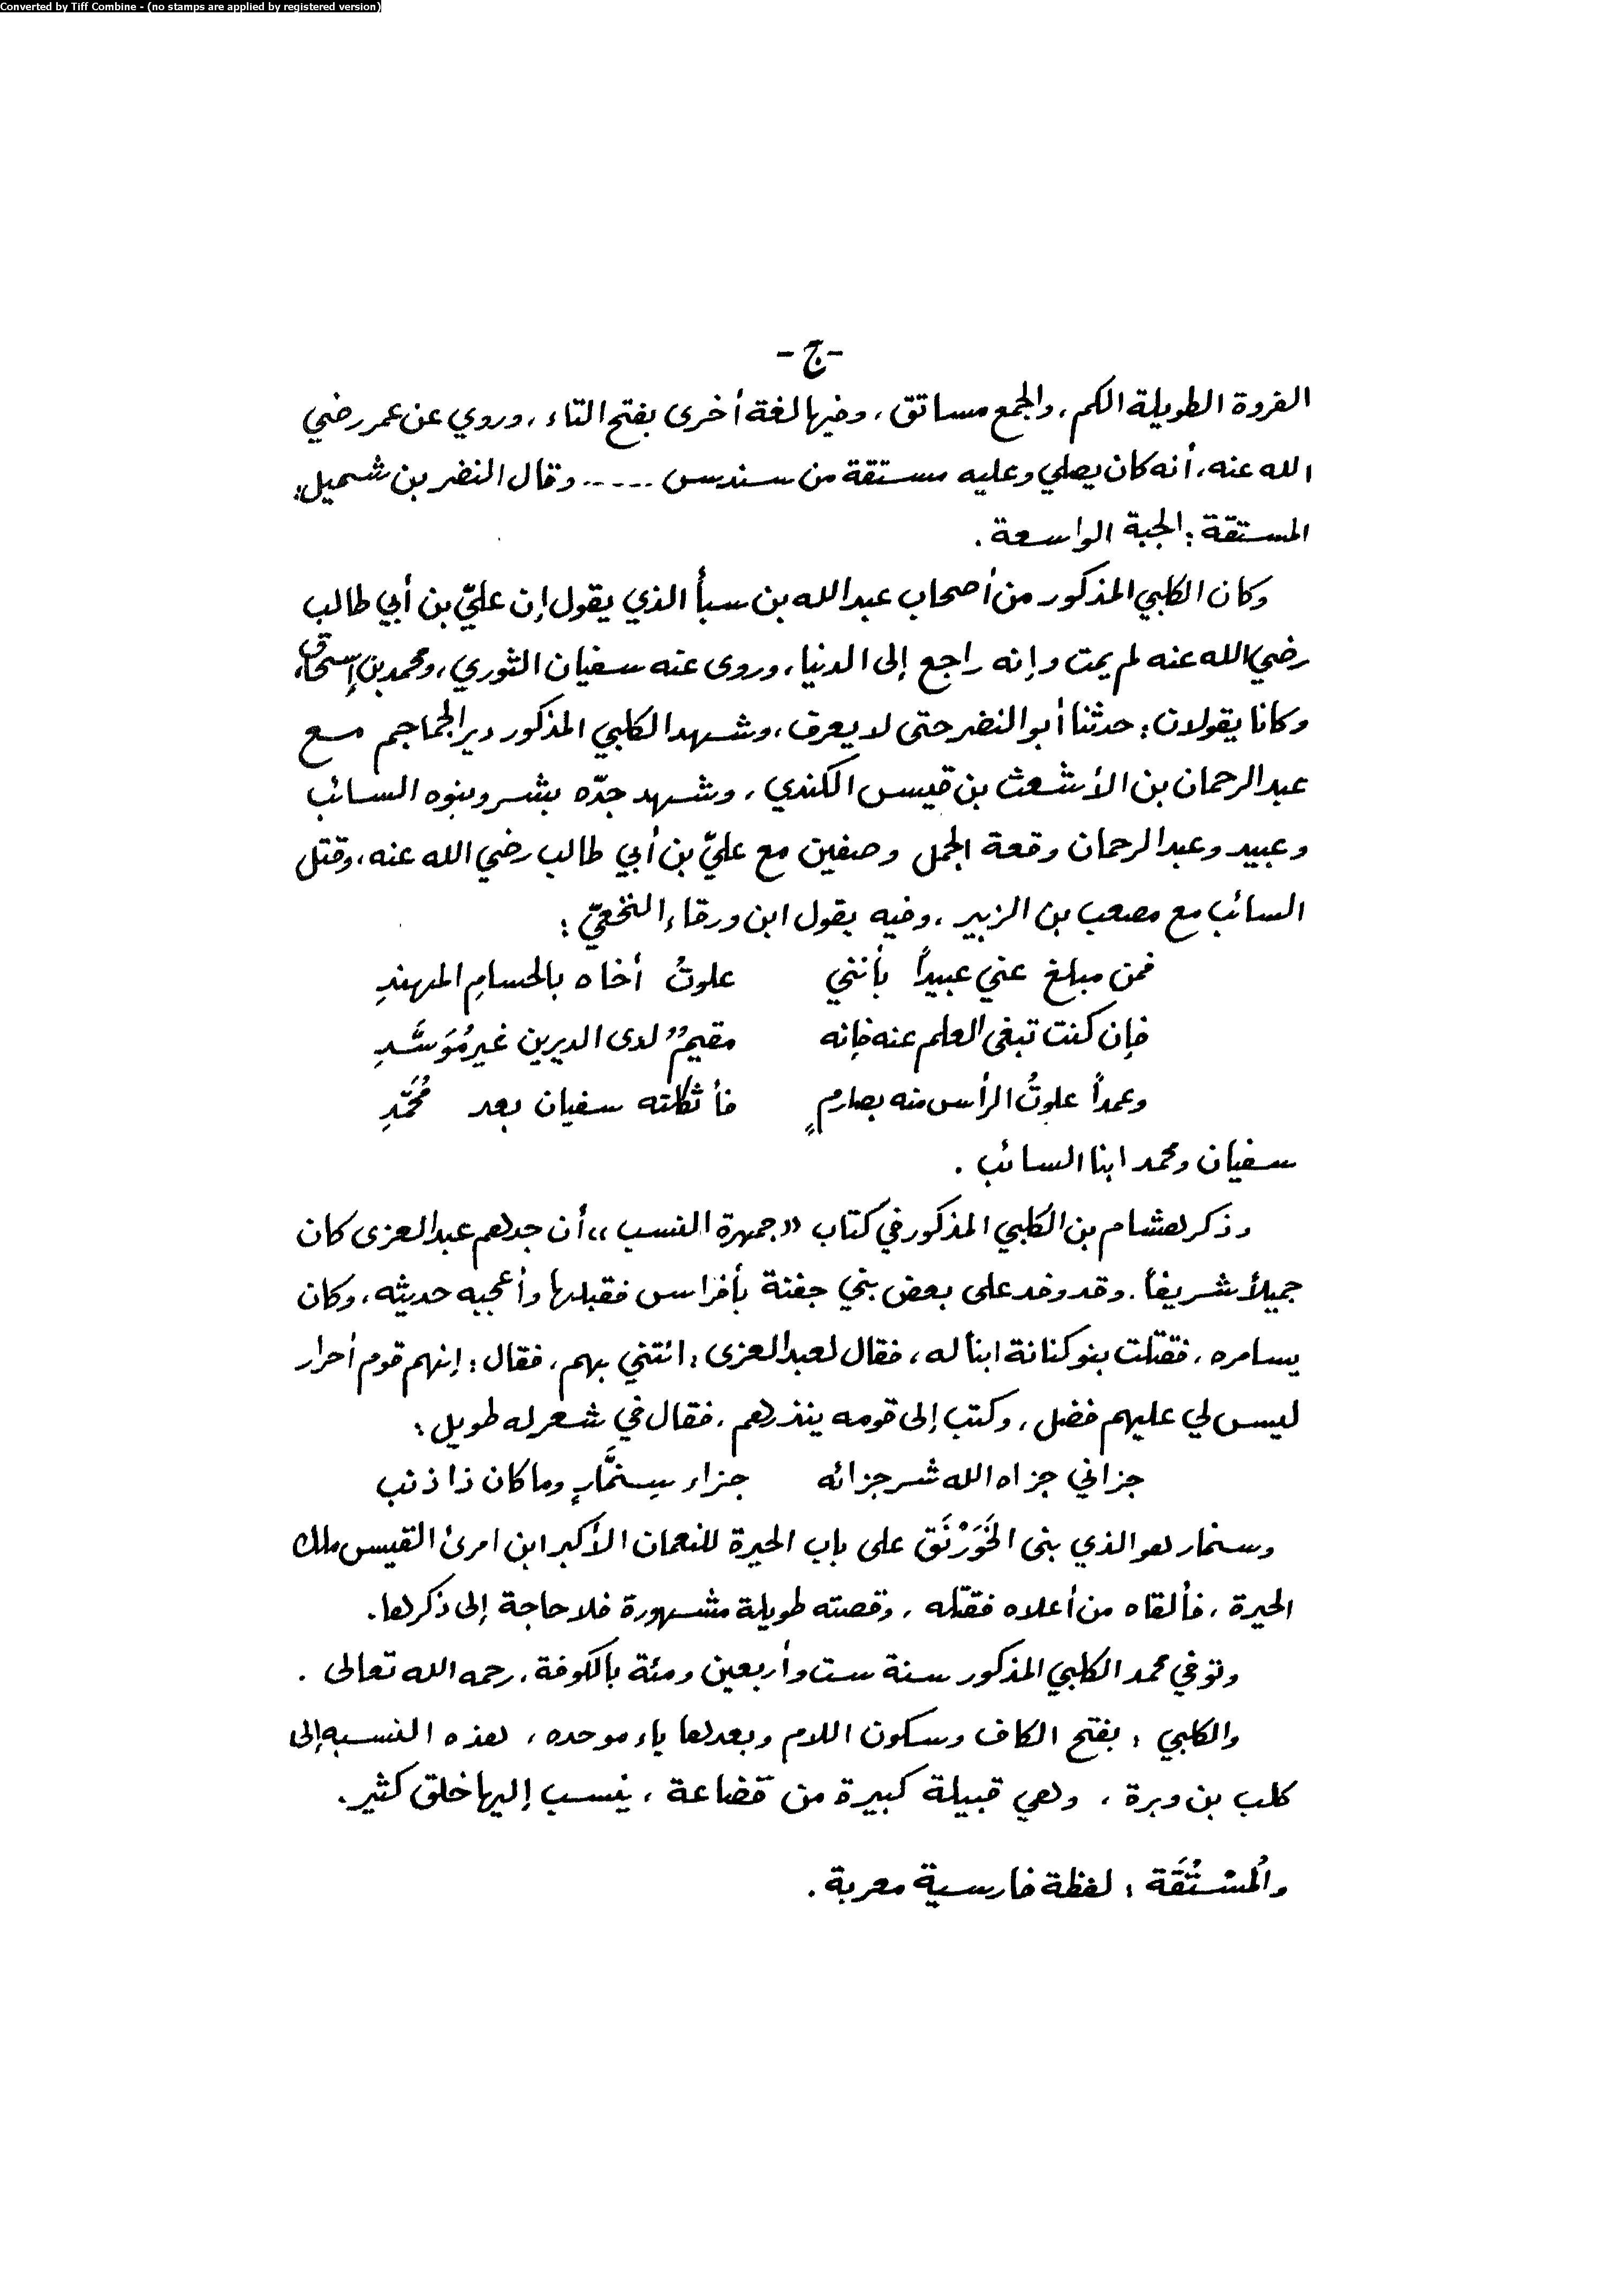 Converted by Tiff Combine - (no stamps are applied by registered version)
- ج -
الفروة الطويلة الكم، والجمع مساتق، وفيها لغة أخرى بفتح التاء، وروي عن عمر رضي
الله عنه، أنه كان يصلي وعليه مستقة من سندس ..... وقال النضر بن شميل:
المستقة: الجبة الواسعة.
وكان الكلبي المذكور من أصحاب عبد الله بن سبأ الذي يقول إن عليّ بن أبي طالب
رضي الله عنه لم يمت وإنه راجع إلى الدنيا، وروى عنه سفيان الثوري، ومحمد بن إسحاق،
وكانا يقولان: حدثنا أبو النضر حتى لا يعرف، وشهد الكلبي المذكور دير الجماجم مع
عبد الرحمان بن الأشعث بن قيس الكندي، وشهد جدّه بشر وبنوه السائب
وعبيد وعبد الرحمان وقعة الجمل وصفين مع عليّ بن أبي طالب رضي الله عنه، وقتل
السائب مع مصعب بن الزبير، وفيه يقول ابن ورقاء النخعيّ:
فمن مبلغ عني عبيداً بأنني علوتُ أخاه بالحسامِ المهندِ
فإن كنت تبغي العلم عنه فإنه مقيمٌ لدى الديرين غير مُوَسَّدِ
وعمداً علوتُ الرأس منه بصارمٍ فأثكلته سفيان بعد مُحَمّدِ
سفيان ومحمد ابنا السائب.
وذكر هشام بن الكلبي المذكور في كتاب «جمهرة النسب» أن جدهم عبد العزى كان
جميلاً شريفاً. وقد وفد على بعض بني جفنة بأفراس فقبلها وأعجبه حديثه، وكان
يسامره، فقتلت بنو كنانة ابناً له، فقال لعبد العزى: ائتني بهم، فقال: إنهم قوم أحرار
ليس لي عليهم فضل، وكتب إلى قومه ينذرهم، فقال في شعر له طويل:
جزاني جزاه الله شر جزائه جزاء سِنمَّارٍ وما كان ذا ذنب
وسنمار هو الذي بنى الخَوَرْنَق على باب الحيرة للنعمان الأكبر ابن امرئ القيس ملك
الحيرة، فألقاه من أعلاه فقتله، وقصته طويلة مشهورة فلا حاجة إلى ذكرها.
وتوفي محمد الكلبي المذكور سنة ست وأربعين ومئة بالكوفة، رحمه الله تعالى.
والكلبي: بفتح الكاف وسكون اللام وبعدها باء موحده، هذه النسبه إلى
كلب بن وبرة، وهي قبيلة كبيرة من قضاعة، ينسب إليها خلق كثير.
والمُسْتُقَة: لفظة فارسية معربة.